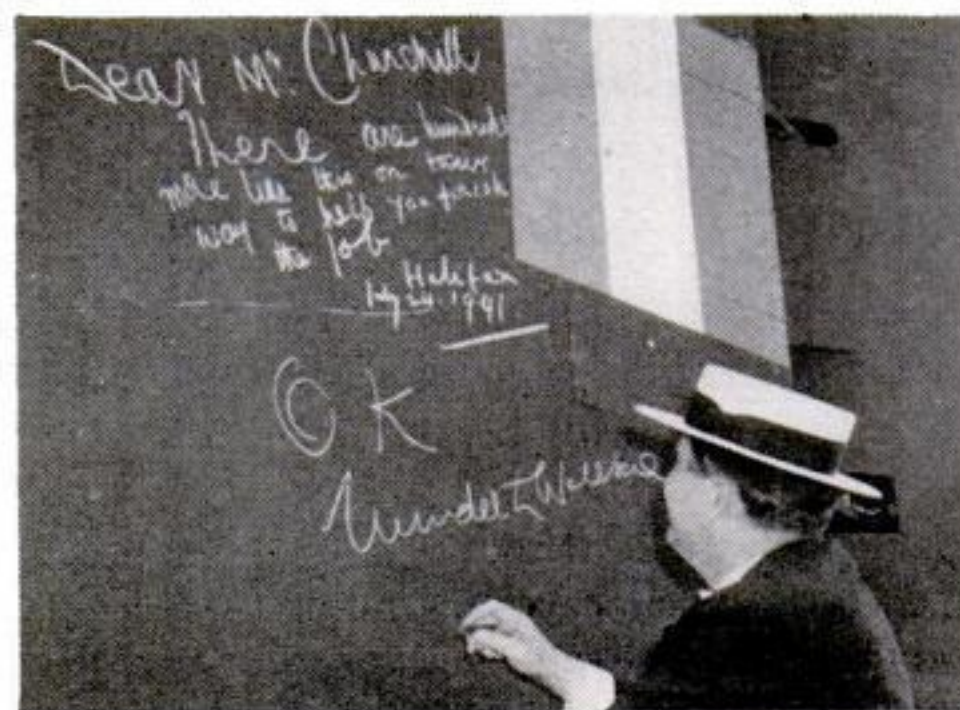 Dear Mr. Churchill
There are hundreds
more like this on their
way to help you finish
the job
Halifax
July 24. 1941
OK
Wendell L Willkie